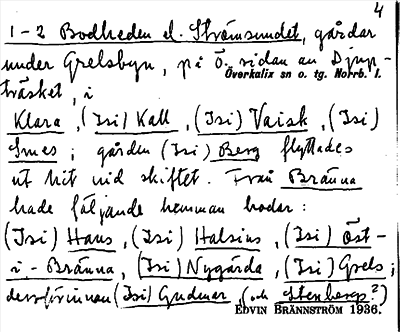 4
1-2 Bodheden el. Strömsundet, gårdar
under Grelsbyn, på ö. sidan av Djup-
Överkalix sn o. tg. Norrb. l.
träsket, i
Klara, (Isi) Kall, (Isi) Vaisk, (Isi)
Smes; gården (Isi) Berg flyttades
ut hit vid skiftet. Från Bränna
hade följande hemman bodar:
(Isi) Hans, (Isi) Halsius, (Isi) Öst-
i-Bränna, (Isi) Nygårda, (Isi) Grels;
dessförinnan (Isi) Gudmar, (och Stenbergs?)
EDVIN BRÄNNSTRÖM 1936.